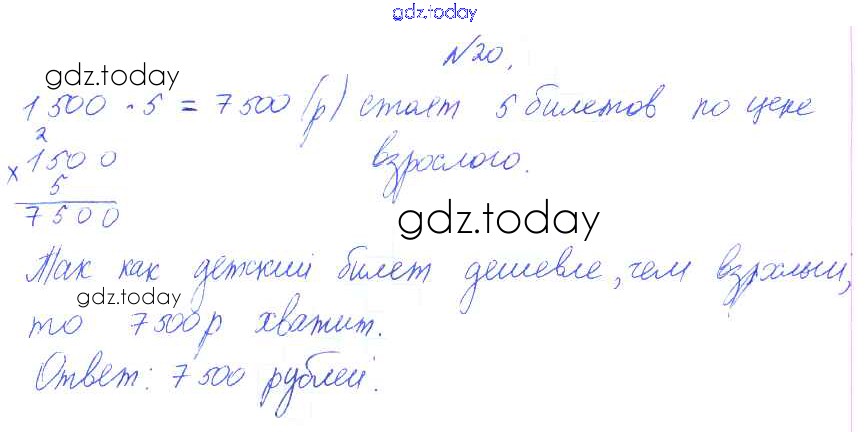 gdz.today
№20.
gdz.today
1500 · 5 = 7500 (р) стоят 5 билетов по цене
взрослого.
2
× 1500
5
7500
gdz.today
Так как детский билет дешевле, чем взрослый,
gdz.today
то 7500р хватит.
Ответ: 7500 рублей.